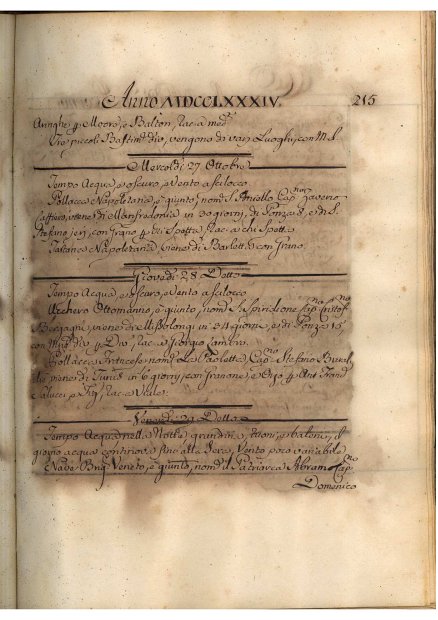 Anno MDCCLXXXIV. 215
Aringhe p Moore, e Balton, rac. a med.
Tre piccoli Bastim. div. vengono di varj Luoghi, con M.
Mercoldì 27 Ottobre
Tempo Acqua, e oscuro, e Vento a scilocco
Pollacca Napoletana, è giunto, nom. S. Aniello Cap.no
viene di Manfredonia in 20 giorni, di Ponza 8, e di S.
Stefano jeri, con Grano p di Spetta, Rac. a chi Spetta
Tartane Napoletane, viene di Barlett. con Grano.
Giovedì 28 Detto
Tempo Acqua, e oscuro, e Vento a scilocco
Ottomanno, è giunto, nom. S. Spiridione Cap.no
viene di Missolongi in 54 giorni, e di Ponza 15
con p Div. rac. a Giorgio
Pollacca Francese nom. La Paoletta, Cap.no Stefano
viene di Tunis in 6 giorni, con Granone, e Ojo p Ant. Franc.
e rac. a
Venerdì 29 Detto
Tempo Acqua, nella Notte grandine, tuoni, e baleni, il
giorno acqua continova fino alla Sera, Vento poco variabile
Nave Brig. Veneto, è giunto, nom. il Patriarca Abramo Cap.no
Domenico